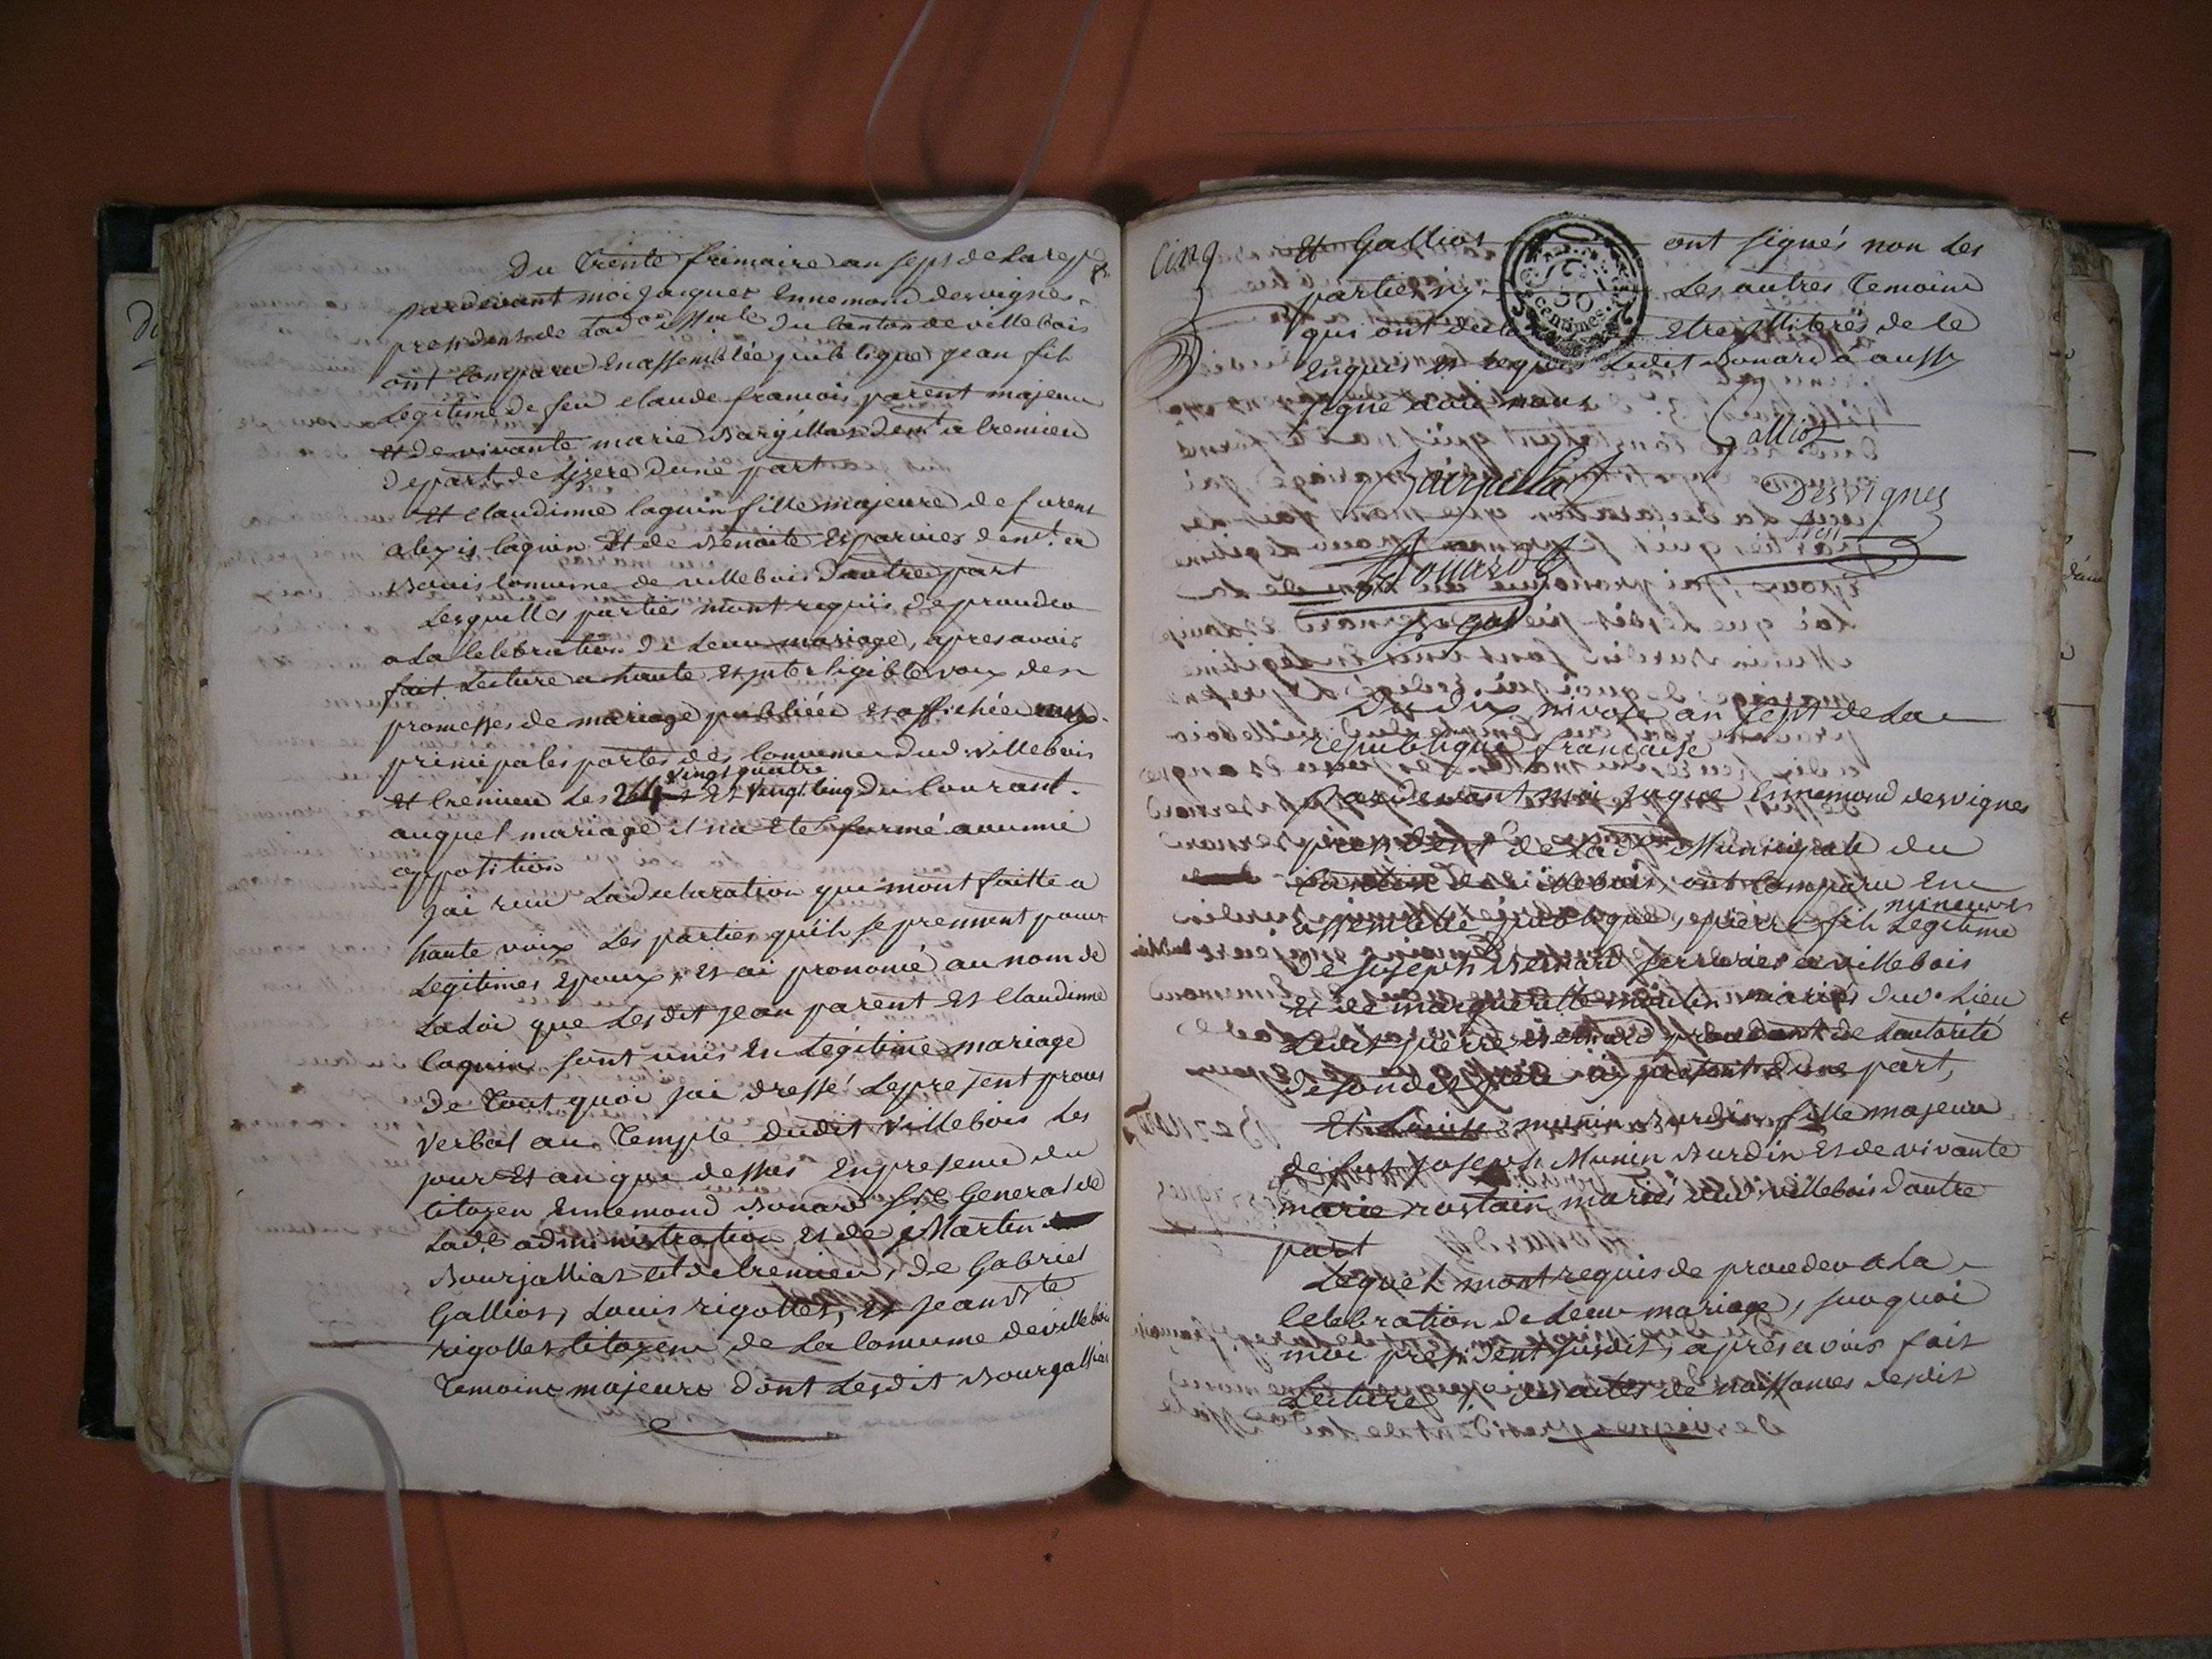 Du trente frimaire an sept de la rep
pardevant moi jacques Ennemond desvignes
president de lad.on M.le du Canton de villebois
ont comparu en assemblée publique jean fils
Legitime de feu claude francois parent majeur
et de vivante marie Bargillat dem.t a Cremieu
depart. de Lizere d'une part
et Claudinne Caquin fille majeure de furent
alexis Caquin et de Benoite dem.t a
Bouis Comune de villebois dautre part
Lesquelles parties mont requis de proceder
a La Celebration de Leur mariage, apres avoir
fait Lecture a haute et interligible voix des
promesses de mariage publiées et affichée aux
principales portes des Comunes dud. villebois
vingt quatre
et Cremieu Les et vingt cinq du Courant.
auquel mariage il na Eté formé aucunne
oppotition
Jai recu La declaration que mont faitte a
haute voix Les parties qu'ils se prennent pour
Legitimes Epoux, et ai prononcé au nom de
La Loi que Lesdit jean parent et Claudinne
Caquin sont unis en Légitime mariage
de Tout quoi jai dressé Le present proces
verbal au Temple dudit villebois Les
jour et an que dessus En presence du
Citoyen Ennemond Bonard S.re General de
Lad.e administration et de Martin
Bourjallias de Cremieu, de Gabriel
Galliot, Louis rigollet, et jean B.te
rigollet Citoyens de La Comune de villebois
Temoins majeurs dont Lesdit Bourgallias
Cinq
et Galliot ont signés non Les
parties ny Les autres Temoins
qui ont decla etre illiterés de le
Enquis et requis Ledit Bonard a aussy
signé avec nous
50
centimes
Galliot
Desvignes
presi
Bonard
S. gal
Du dix nivose an sept de La
republique française
Pardevant moi jaque Ennemond desvignes
president de Lad. Municipale du
Canton de villebois, ont Comparu en
mineur
assemblée publique, pierre fils Legitime
de joseph Bernard serrurier a villebois
et de margueritte moulin mariés dud. Lieu
Ledit pierre Bernard procedant de Lautorité
de sondit pere ici present d'une part,
Et Louise munin Burdin fille majeure
de fut joseph Munin Burdin et de vivante
marie rostain mariés dud. villebois dautre
part
Lequels mont requis de proceder a La
Celebration de Leur mariage, sur quoi
moi president susdit, apres avois fait
Lecture 1.° des actes de naissances desdit